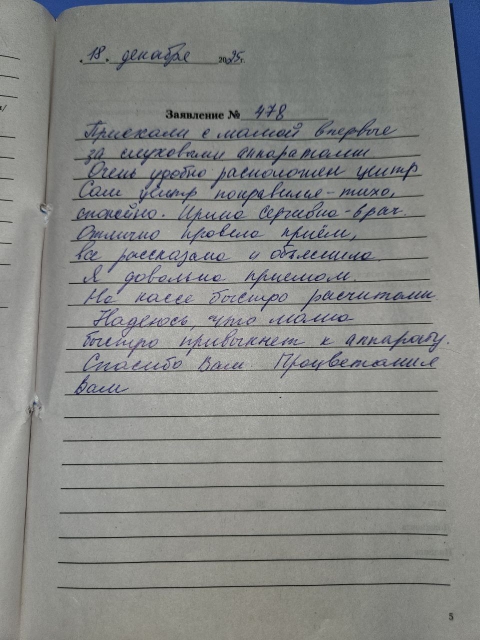 18. декабря 2025г.
Заявление № 478
Приехали с мамой впервые
за слуховыми аппаратами
Очень удобно расположен центр
Сам центр понравился - тихо,
спокойно. Ирина Сергеевна - врач.
Отлично провела приём,
все рассказала и объяснила.
Я довольна приемом.
На кассе быстро расчитали
Надеюсь, что мама
быстро привыкнет к аппарату.
Спасибо Вам Процветания
Вам
5